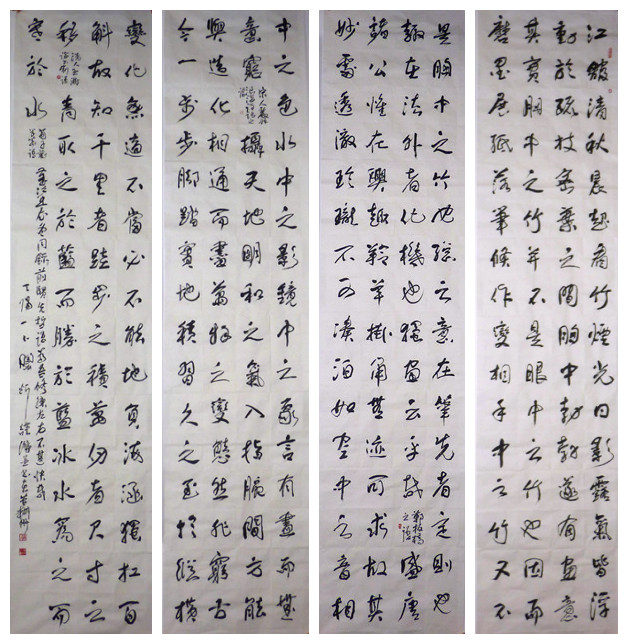 江館清秋晨起看竹煙光日影露氣皆浮
動於疏枝密葉之間胸中勃勃遂有畫意
其實胸中之竹並不是眼中之竹也因而
磨墨展紙落筆倏作變相手中之竹又不
是胸中之竹也總之意在筆先者定則也
趣在法外者化機也獨畫云乎哉鄭板橋之語盛唐
諸公惟在興趣羚羊掛角無迹可求故其
妙處透澈玲瓏不可湊泊如空中之音相
中之色水中之影鏡中之象言有盡而無
意窮攝天地明和之氣入指腕間方能
與造化相通而盡萬物之變態然非窮古
今一步步腳踏實地積習久之至於縱橫
變化無適不當必不能地負海涵獨扛百
斛故知千里者跬步之積萬仞者尺寸之
移青取之於藍而勝於藍冰水為之而
寒於水